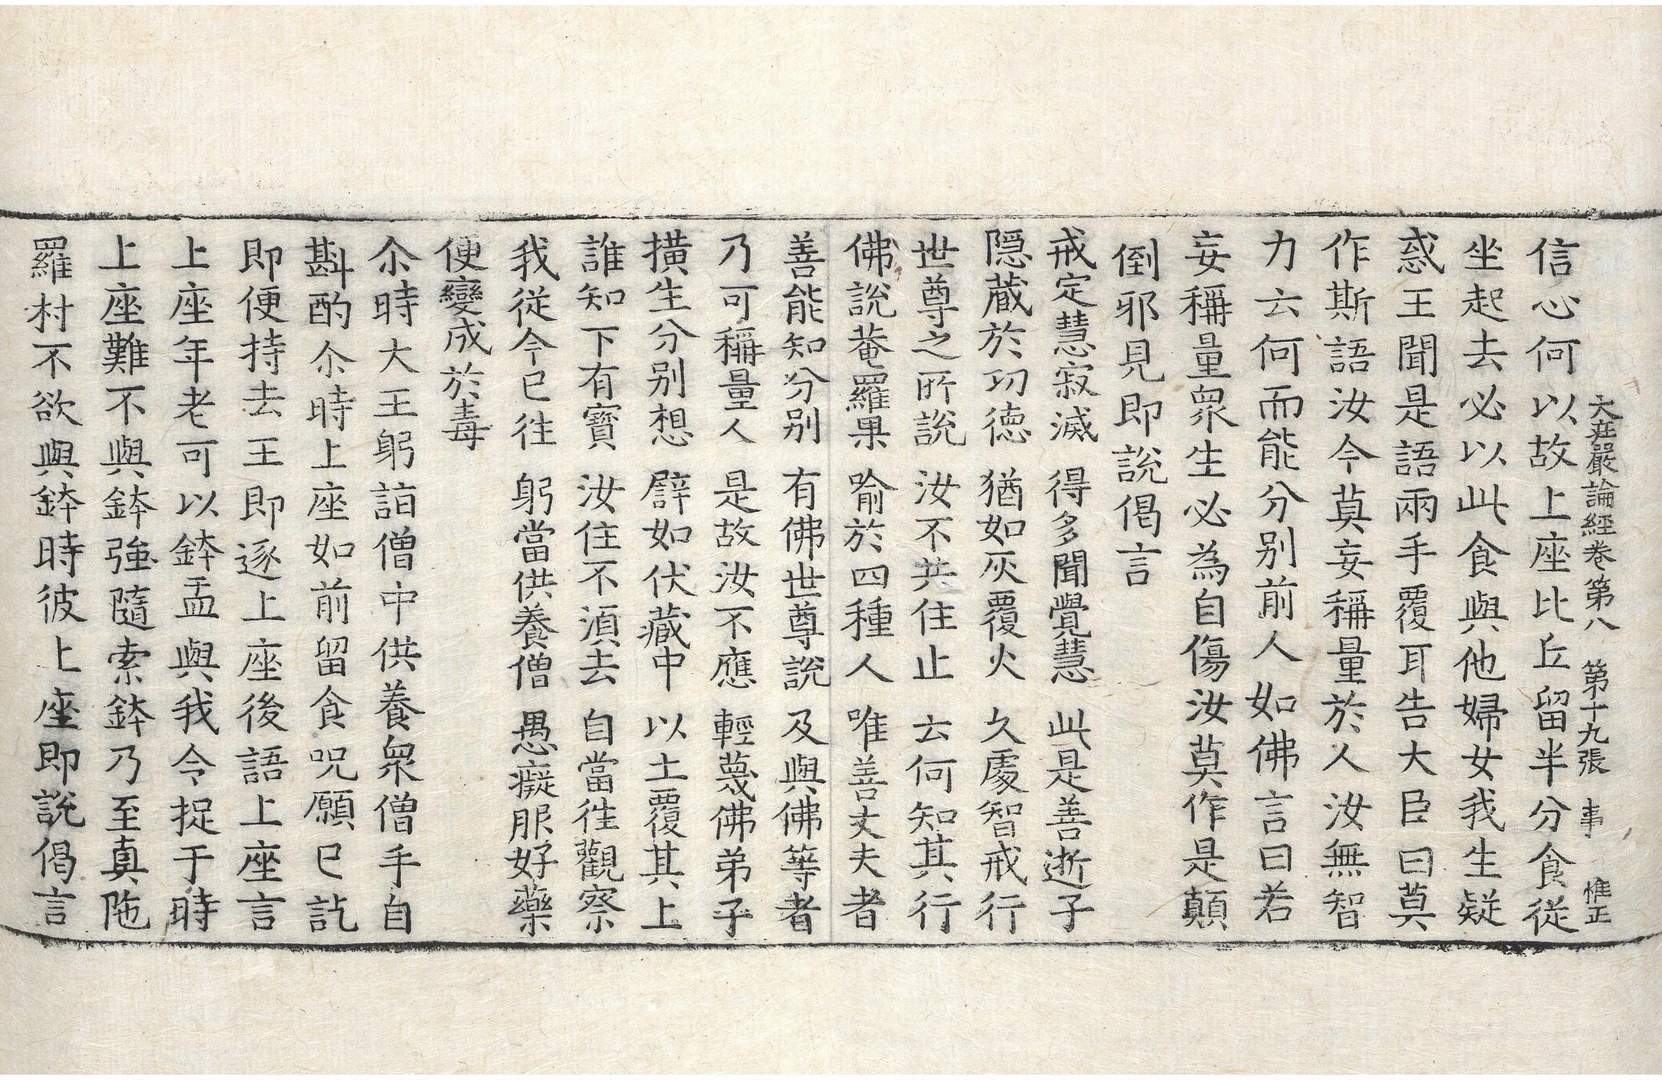 大莊嚴論經卷第八　第十九張　事　惟正
信心何以故上座比丘留半分食從
坐起去必以此食與他婦女我生疑
惑王聞是語兩手覆耳告大臣曰莫
作斯語汝今莫妄稱量於人汝無智
力云何而能分別前人如佛言曰若
妄稱量衆生必為自傷汝莫作是顛
倒邪見即說偈言
戒定慧寂滅　得多聞覺慧　此是善逝子
隱藏於功德　猶如灰覆火　久處智戒行
世尊之所說　汝不共住止　云何知其行
佛說菴羅果　喻於四種人　唯善丈夫者
善能知分別　有佛世尊說　及與佛等者
乃可稱量人　是故汝不應　輕蔑佛弟子
撗生分別想　譬如伏藏中　以土覆其上
誰知下有寶　汝住不湏去　自當往觀察
我從今已往　躬當供養僧　愚癡服好藥
便變成於毒
尒時大王躬詣僧中供養衆僧手自
斟酌尒時上座如前留食呪願已訖
即便持去王即逐上座後語上座言
上座年老可以鉢盂與我令捉于時
上座難不與鉢強隨索鉢乃至真陁
羅村不欲與鉢時彼上座即說偈言